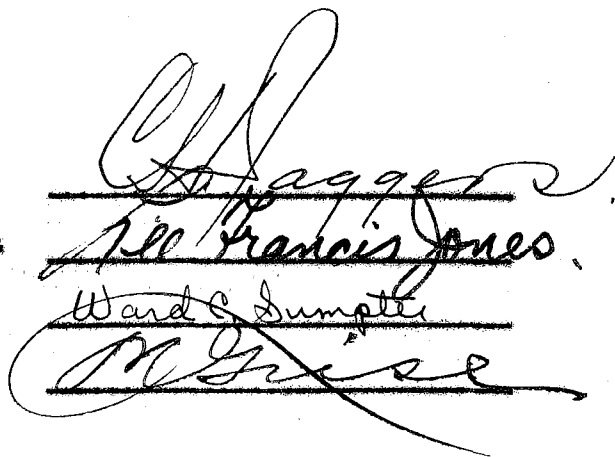 Jaggers
Lee Francis Jones.
Ward C. Sumpter
Grise